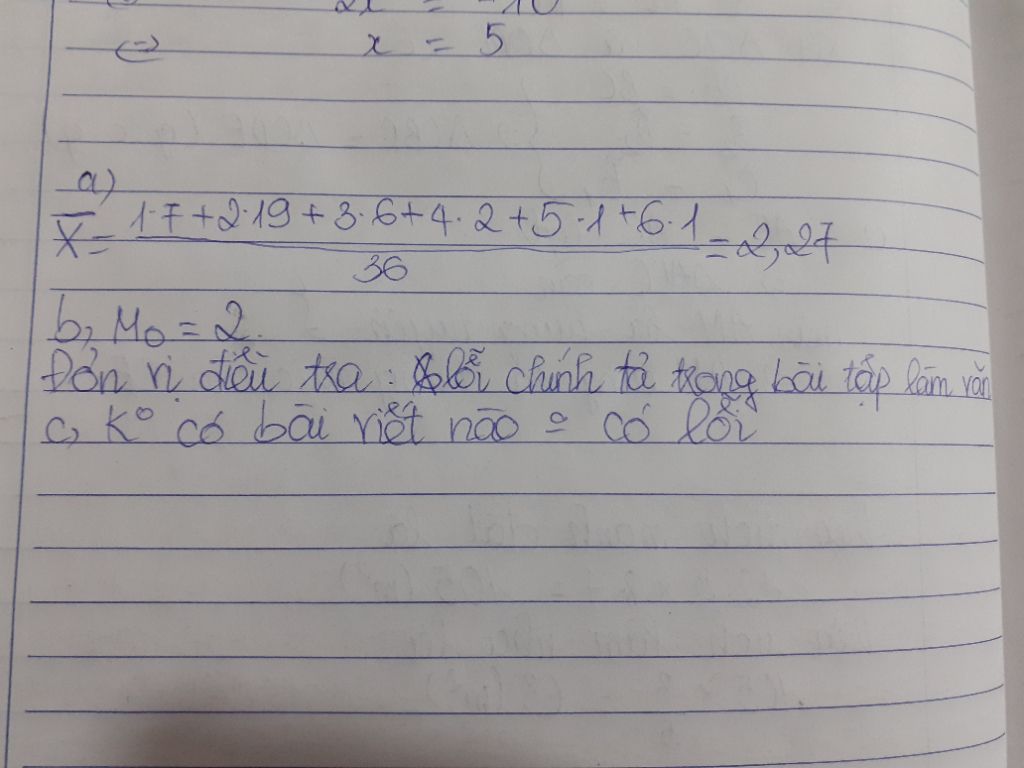 2x = -10
⇔ x = 5
a)
X̄ = 1·7 + 2·19 + 3·6 + 4·2 + 5·1 + 6·1 / 36 = 2,27
b, M₀ = 2.
Đơn vị điều tra : lỗi chính tả trong bài tập làm văn
c, K° có bài viết nào = có lỗi